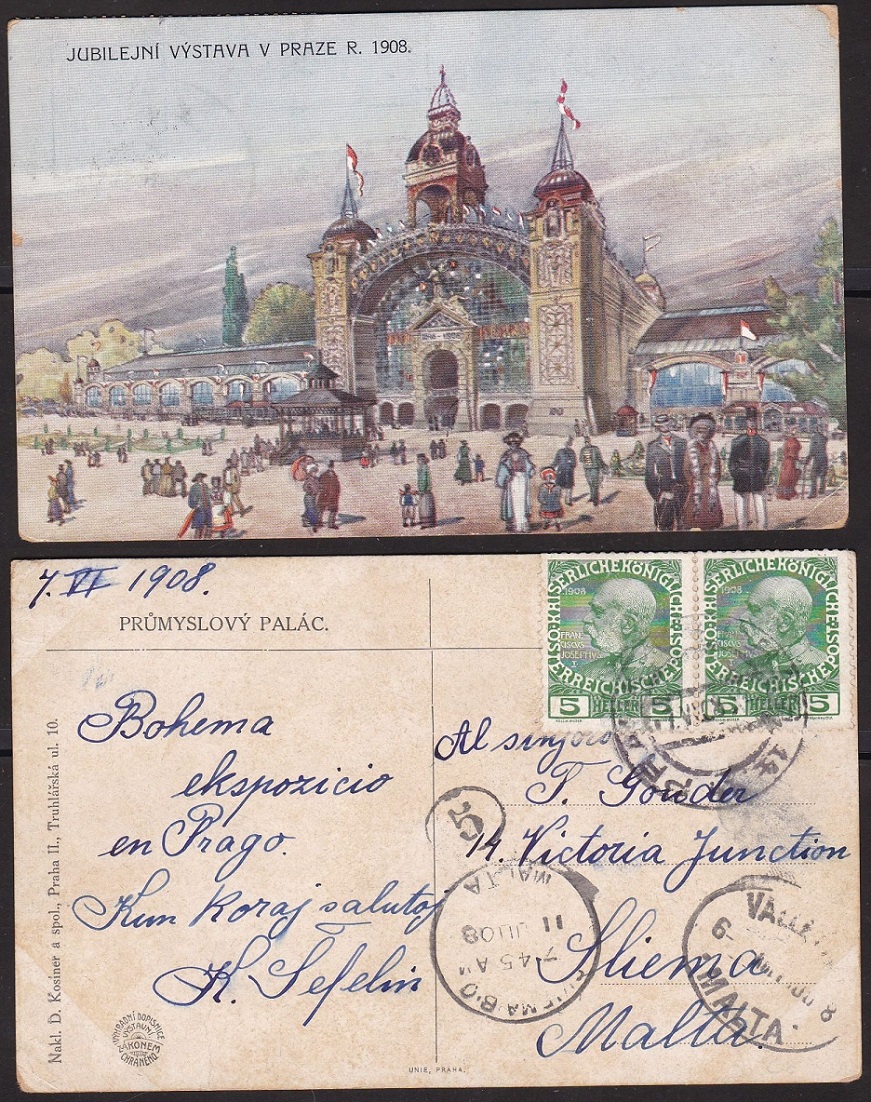 JUBILEJNÍ VÝSTAVA V PRAZE R. 1908.
7. VI 1908.
PRŮMYSLOVÝ PALÁC.
Bohema
ekspozicio
en Prago.
Kun koraj salutoj
K. Šefelin
Nakl. D. Kosiner a spol., Praha II., Truhlářská ul. 10.
VÝHRADNÍ DOPISNICE
VÝSTAVNÍ
ZÁKONEM
CHRÁNĚNO
UNIE, PRAHA.
KAISERLICHE KÖNIGLICHE
ÖSTERREICHISCHE POST
1908
FRAN
CISCVS
JOSEPHVS
I
5 HELLER 5
KAISERLICHE KÖNIGLICHE
ÖSTERREICHISCHE POST
1908
5 HELLER 5
Al sinjoro
T. Gouder
14. Victoria Junction
Sliema
Malta.
MALTA
11 JU 08
7 45 AM
SLIEMA B.O
VALLETTA
MALTA